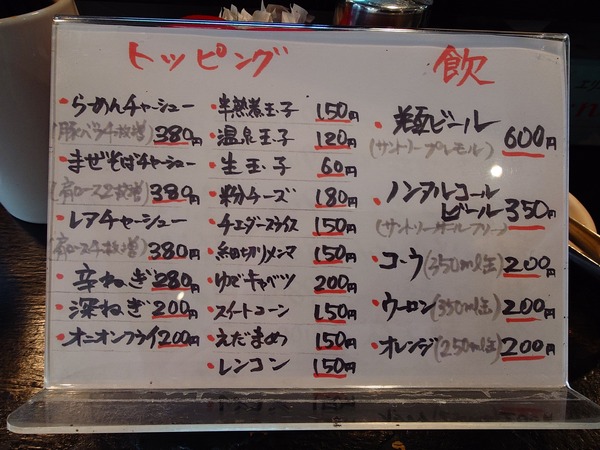 トッピング
・らーめんチャーシュー
(豚バラ4枚増) 380円
・まぜそばチャーシュー
(肩ロース2枚増) 380円
・レアチャーシュー
(肩ロース4枚増) 380円
・辛ねぎ 280円
・深ねぎ 200円
・オニオンフライ 200円
・半熟煮玉子 150円
・温泉玉子 120円
・生玉子 60円
・粉チーズ 180円
・チェダースライス 150円
・細切りメンマ 150円
・ゆでキャベツ 200円
・スイートコーン 150円
・えだまめ 150円
・レンコン 150円
飲
・瓶ビール 600円
(サントリープレモル)
・ノンアルコール
ビール 350円
(サントリーオールフリー)
・コーラ(350ml缶) 200円
・ウーロン(350ml缶) 200円
・オレンジ(250ml缶) 200円